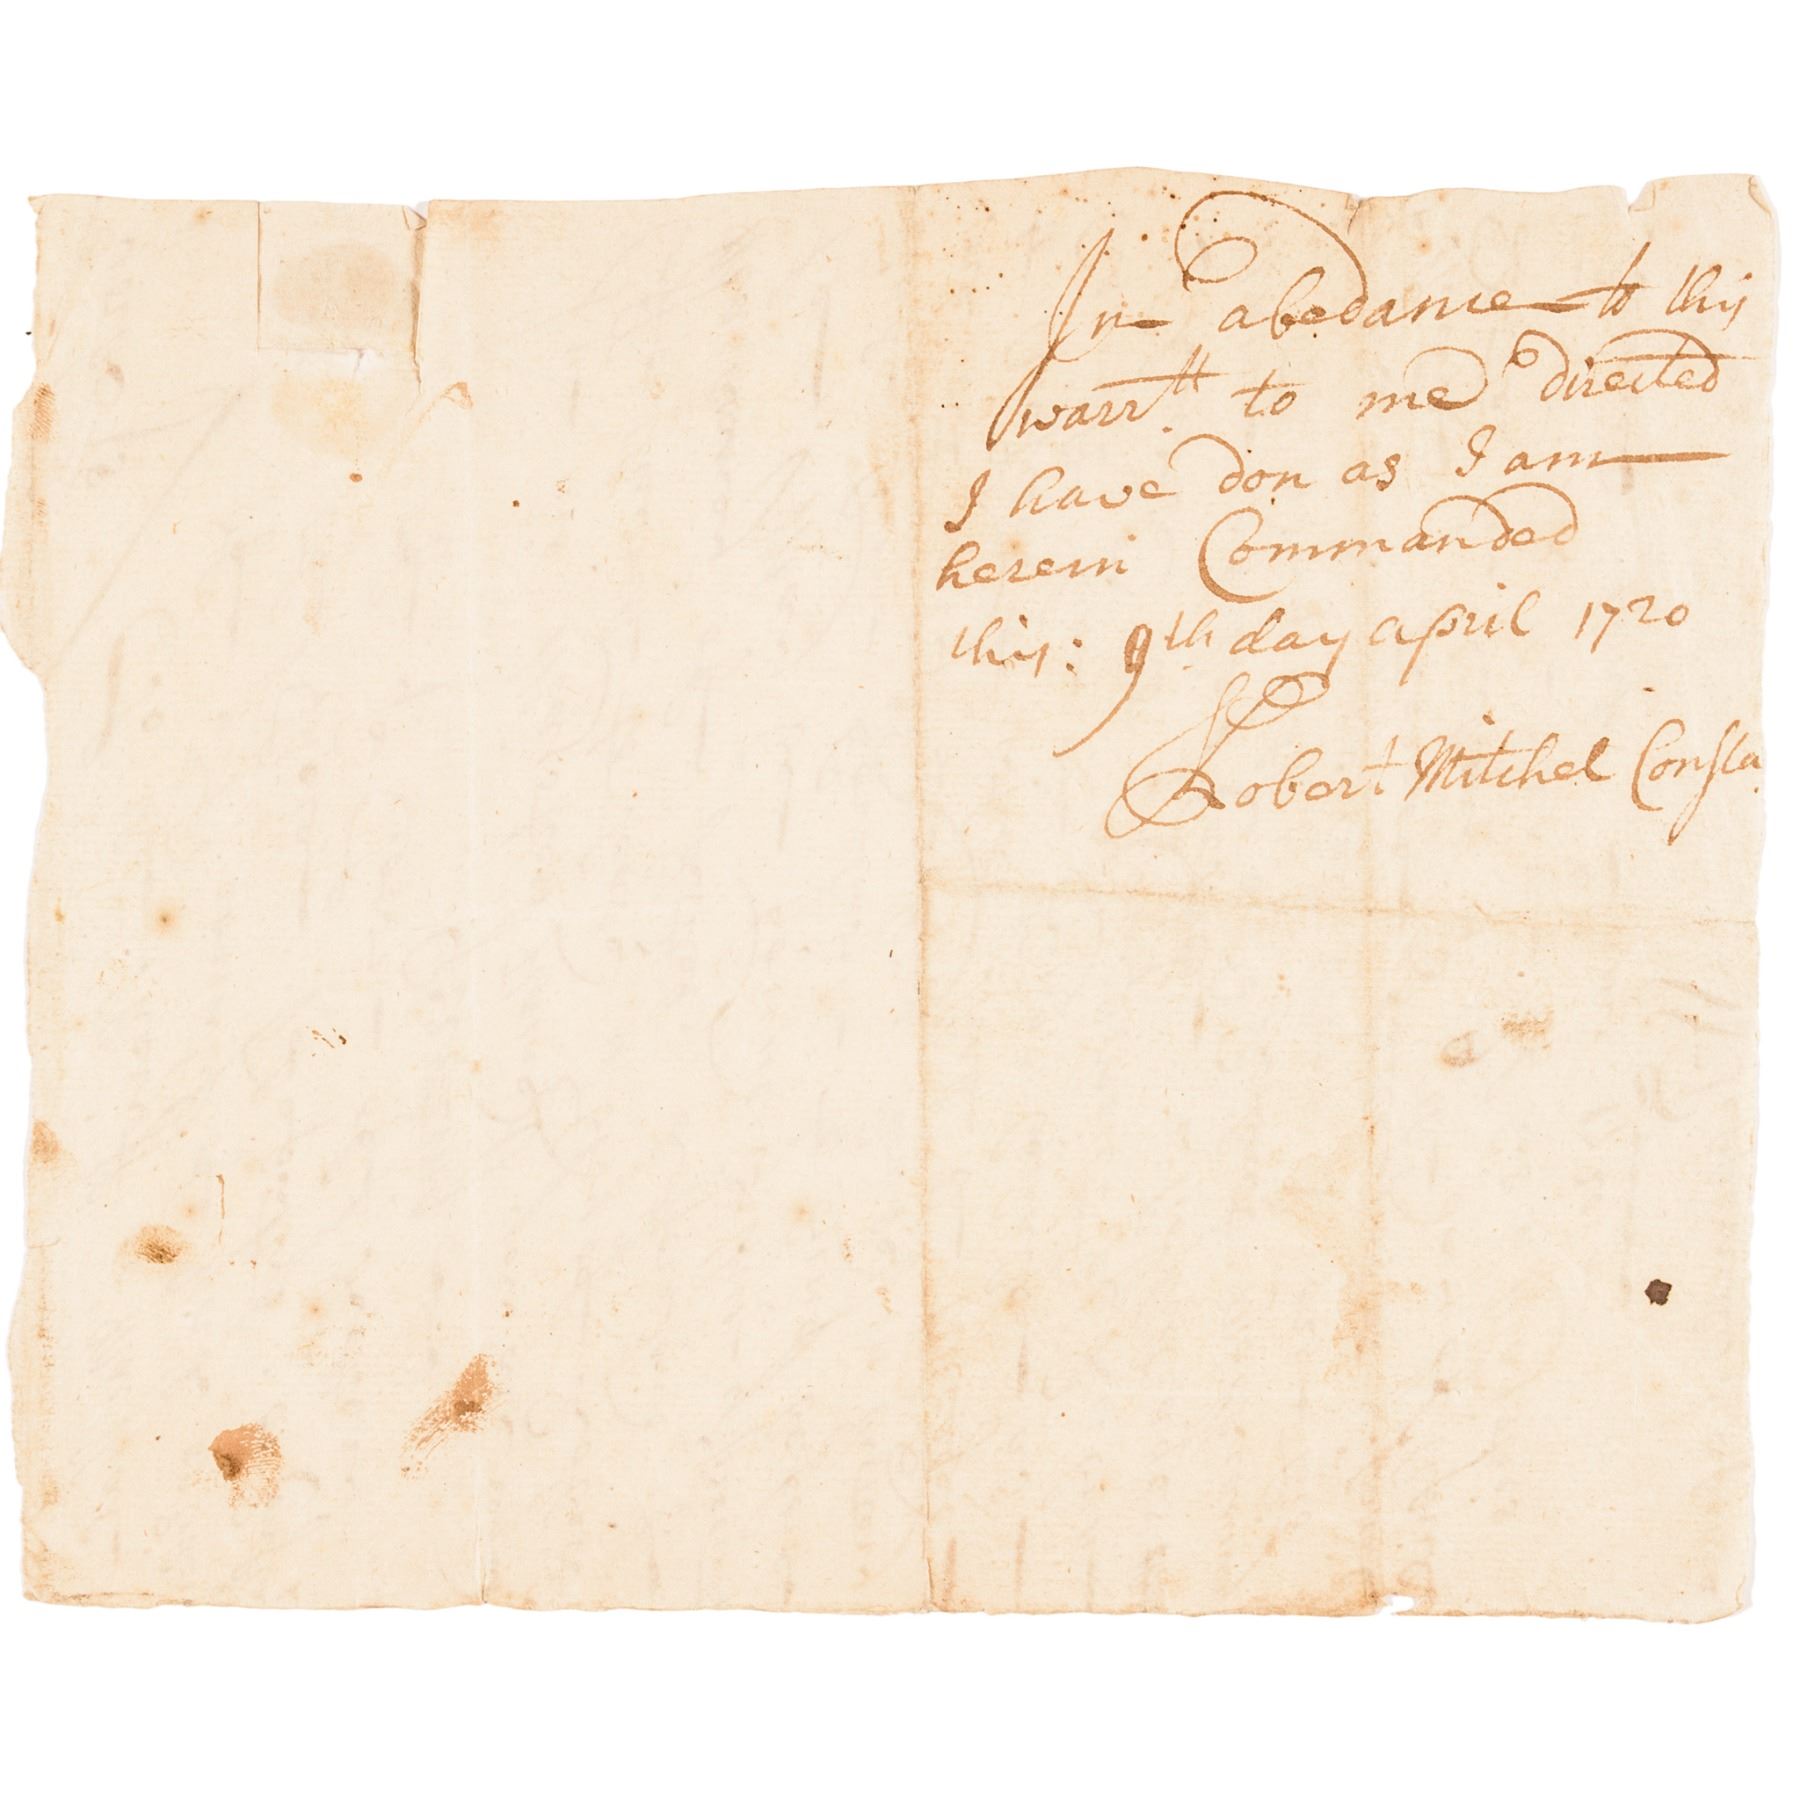 In abedance to this
warrtt to me directed
I have don as I am
herein Commanded
this: 9th day april 1720
Robert Mitchel Consta